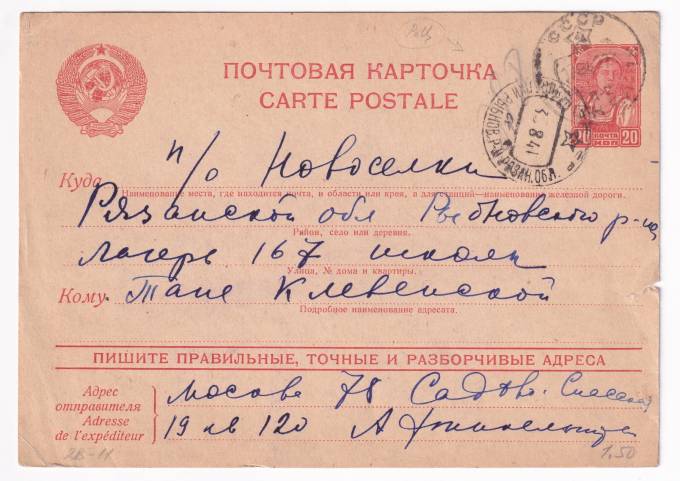 ПОЧТОВАЯ КАРТОЧКА
CARTE POSTALE
СССР
ПОЧТА
20 КОП 20
РЫБНОВ. Р-Н РЯЗАН. ОБЛ.
8.41
Куда п/о Новоселки
Наименование места, где находится почта, и области или края, а для станций—наименование железной дороги.
Рязанской обл Рыбновского р-на
Район, село или деревня.
лагерь 167 школы
Улица, № дома и квартиры.
Кому Тане Клевенской
Подробное наименование адресата.
ПИШИТЕ ПРАВИЛЬНЫЕ, ТОЧНЫЕ И РАЗБОРЧИВЫЕ АДРЕСА
Адрес
отправителя
Adresse
de l'expéditeur
Москва 78 Садов. Спасская
19 кв 120
1.50